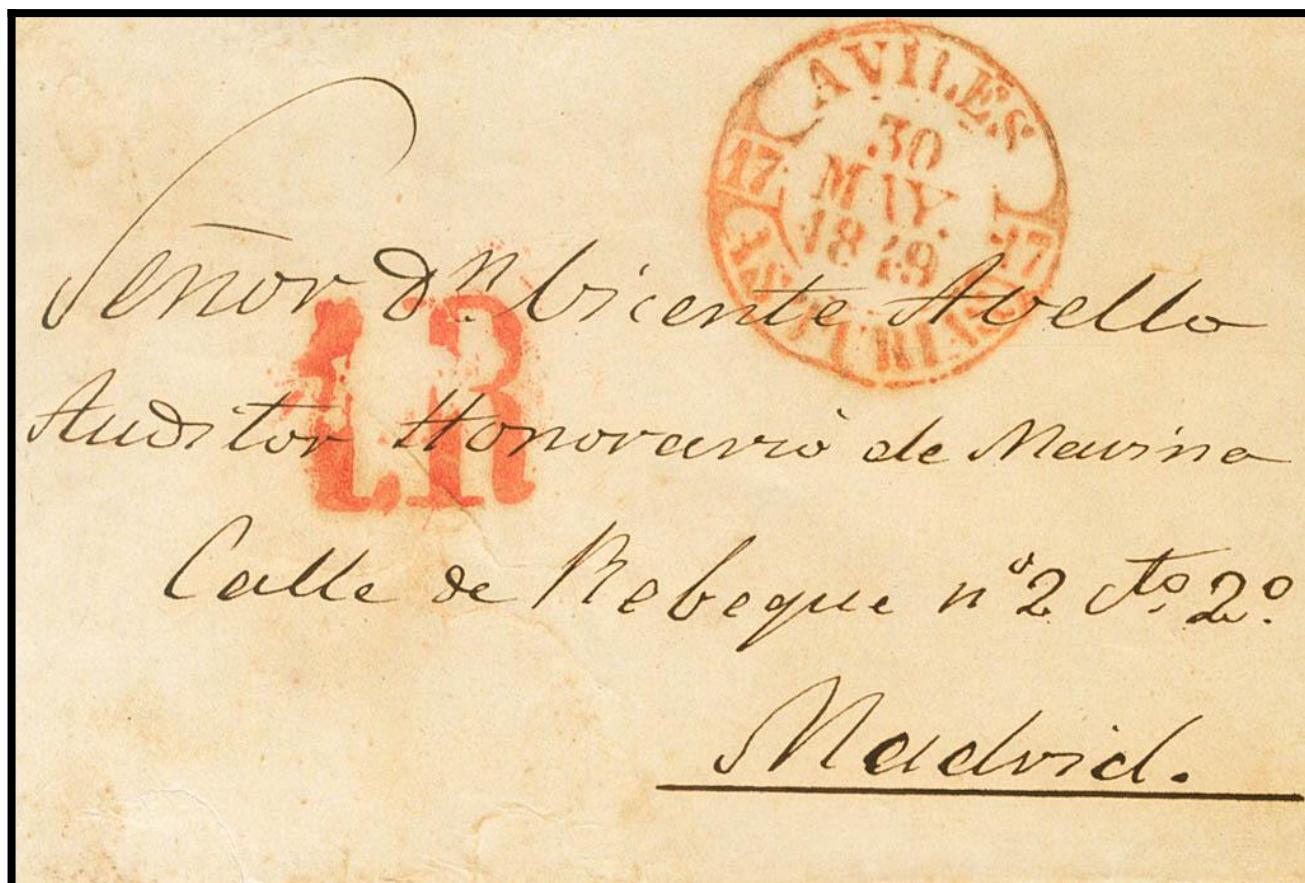 AVILÉS
30
MAY.
1849
17 17
ASTURIAS
1.R
Señor Dn. Vicente Abello
Auditor Honorario de Marina
Calle de Rebeque nº 2 cto. 2º.
Madrid.